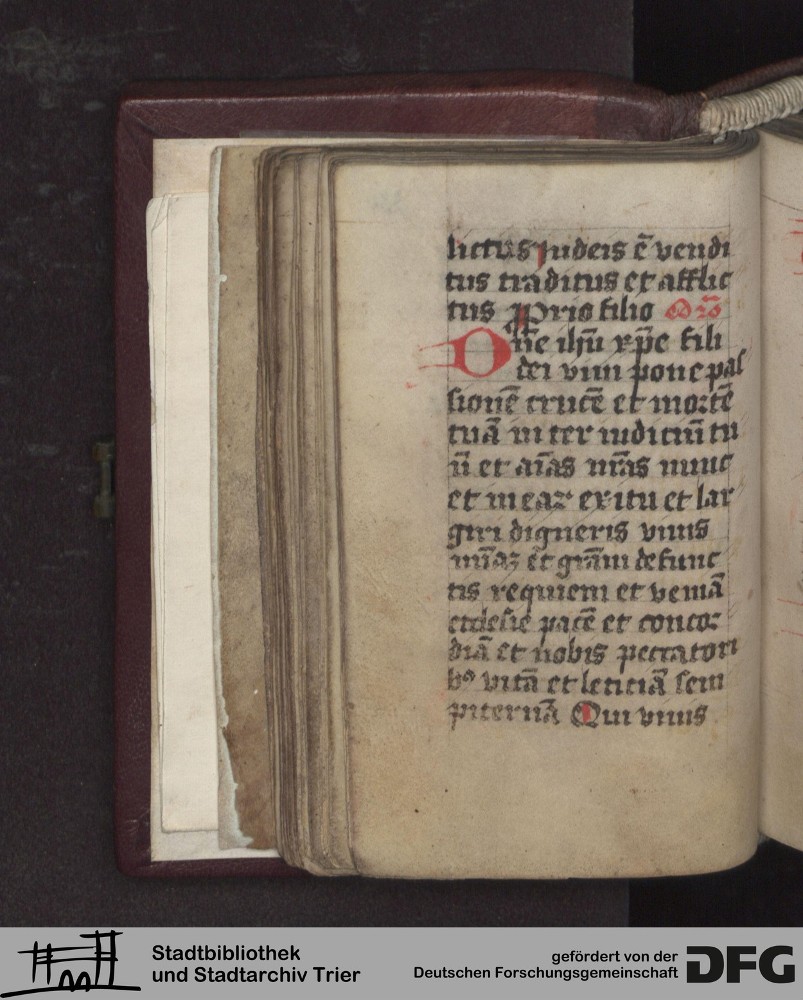 lictus iudeis ē vendi
tus traditus et afflic
tus Pprio filio
One ihū xp̄e fili
dei viui pone pas
sionē crucē et mortē
tuā inter iudiciū tu
ū et aīas nr̄as nunc
et in eaꝝ exitu et lar
giri digneris viuis
et grām defunc
tis requiem et veniā
ecclesie pacē et concor
diā et nobis peccatori
bꝰ vitā et leticiā sem
piternā Qui viuis
Stadtbibliothek
und Stadtarchiv Trier
gefördert von der
Deutschen Forschungsgemeinschaft
DFG